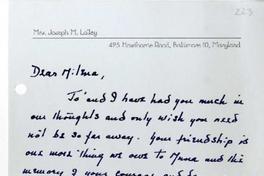 223
Mrs. Joseph M. Lalley
495 Hawthorne Road, Baltimore 10, Maryland
Dear Milena,
To and I have had you much in
our thoughts and only wish you need
not be so far away. Your friendship is
one more thing we owe to Mana and the
memory of your courage and